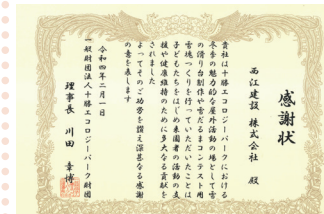 感謝状
西江建設 株式会社 殿
貴社は十勝エコロジーパークにおける
冬季の魅力的な屋外活動の場として雪
の滑り台制作や雪だるまコンテスト用
雪塊つくりを行っていただいたことは
子どもたちをはじめ来園者の活動の支
援や健康維持のために多大なる貢献を
されました
よってそのご功労を讃え深甚なる感謝
の意を表します
令和四年二月一日
一般財団法人十勝エコロジーパーク財団
理事長 川田 章博